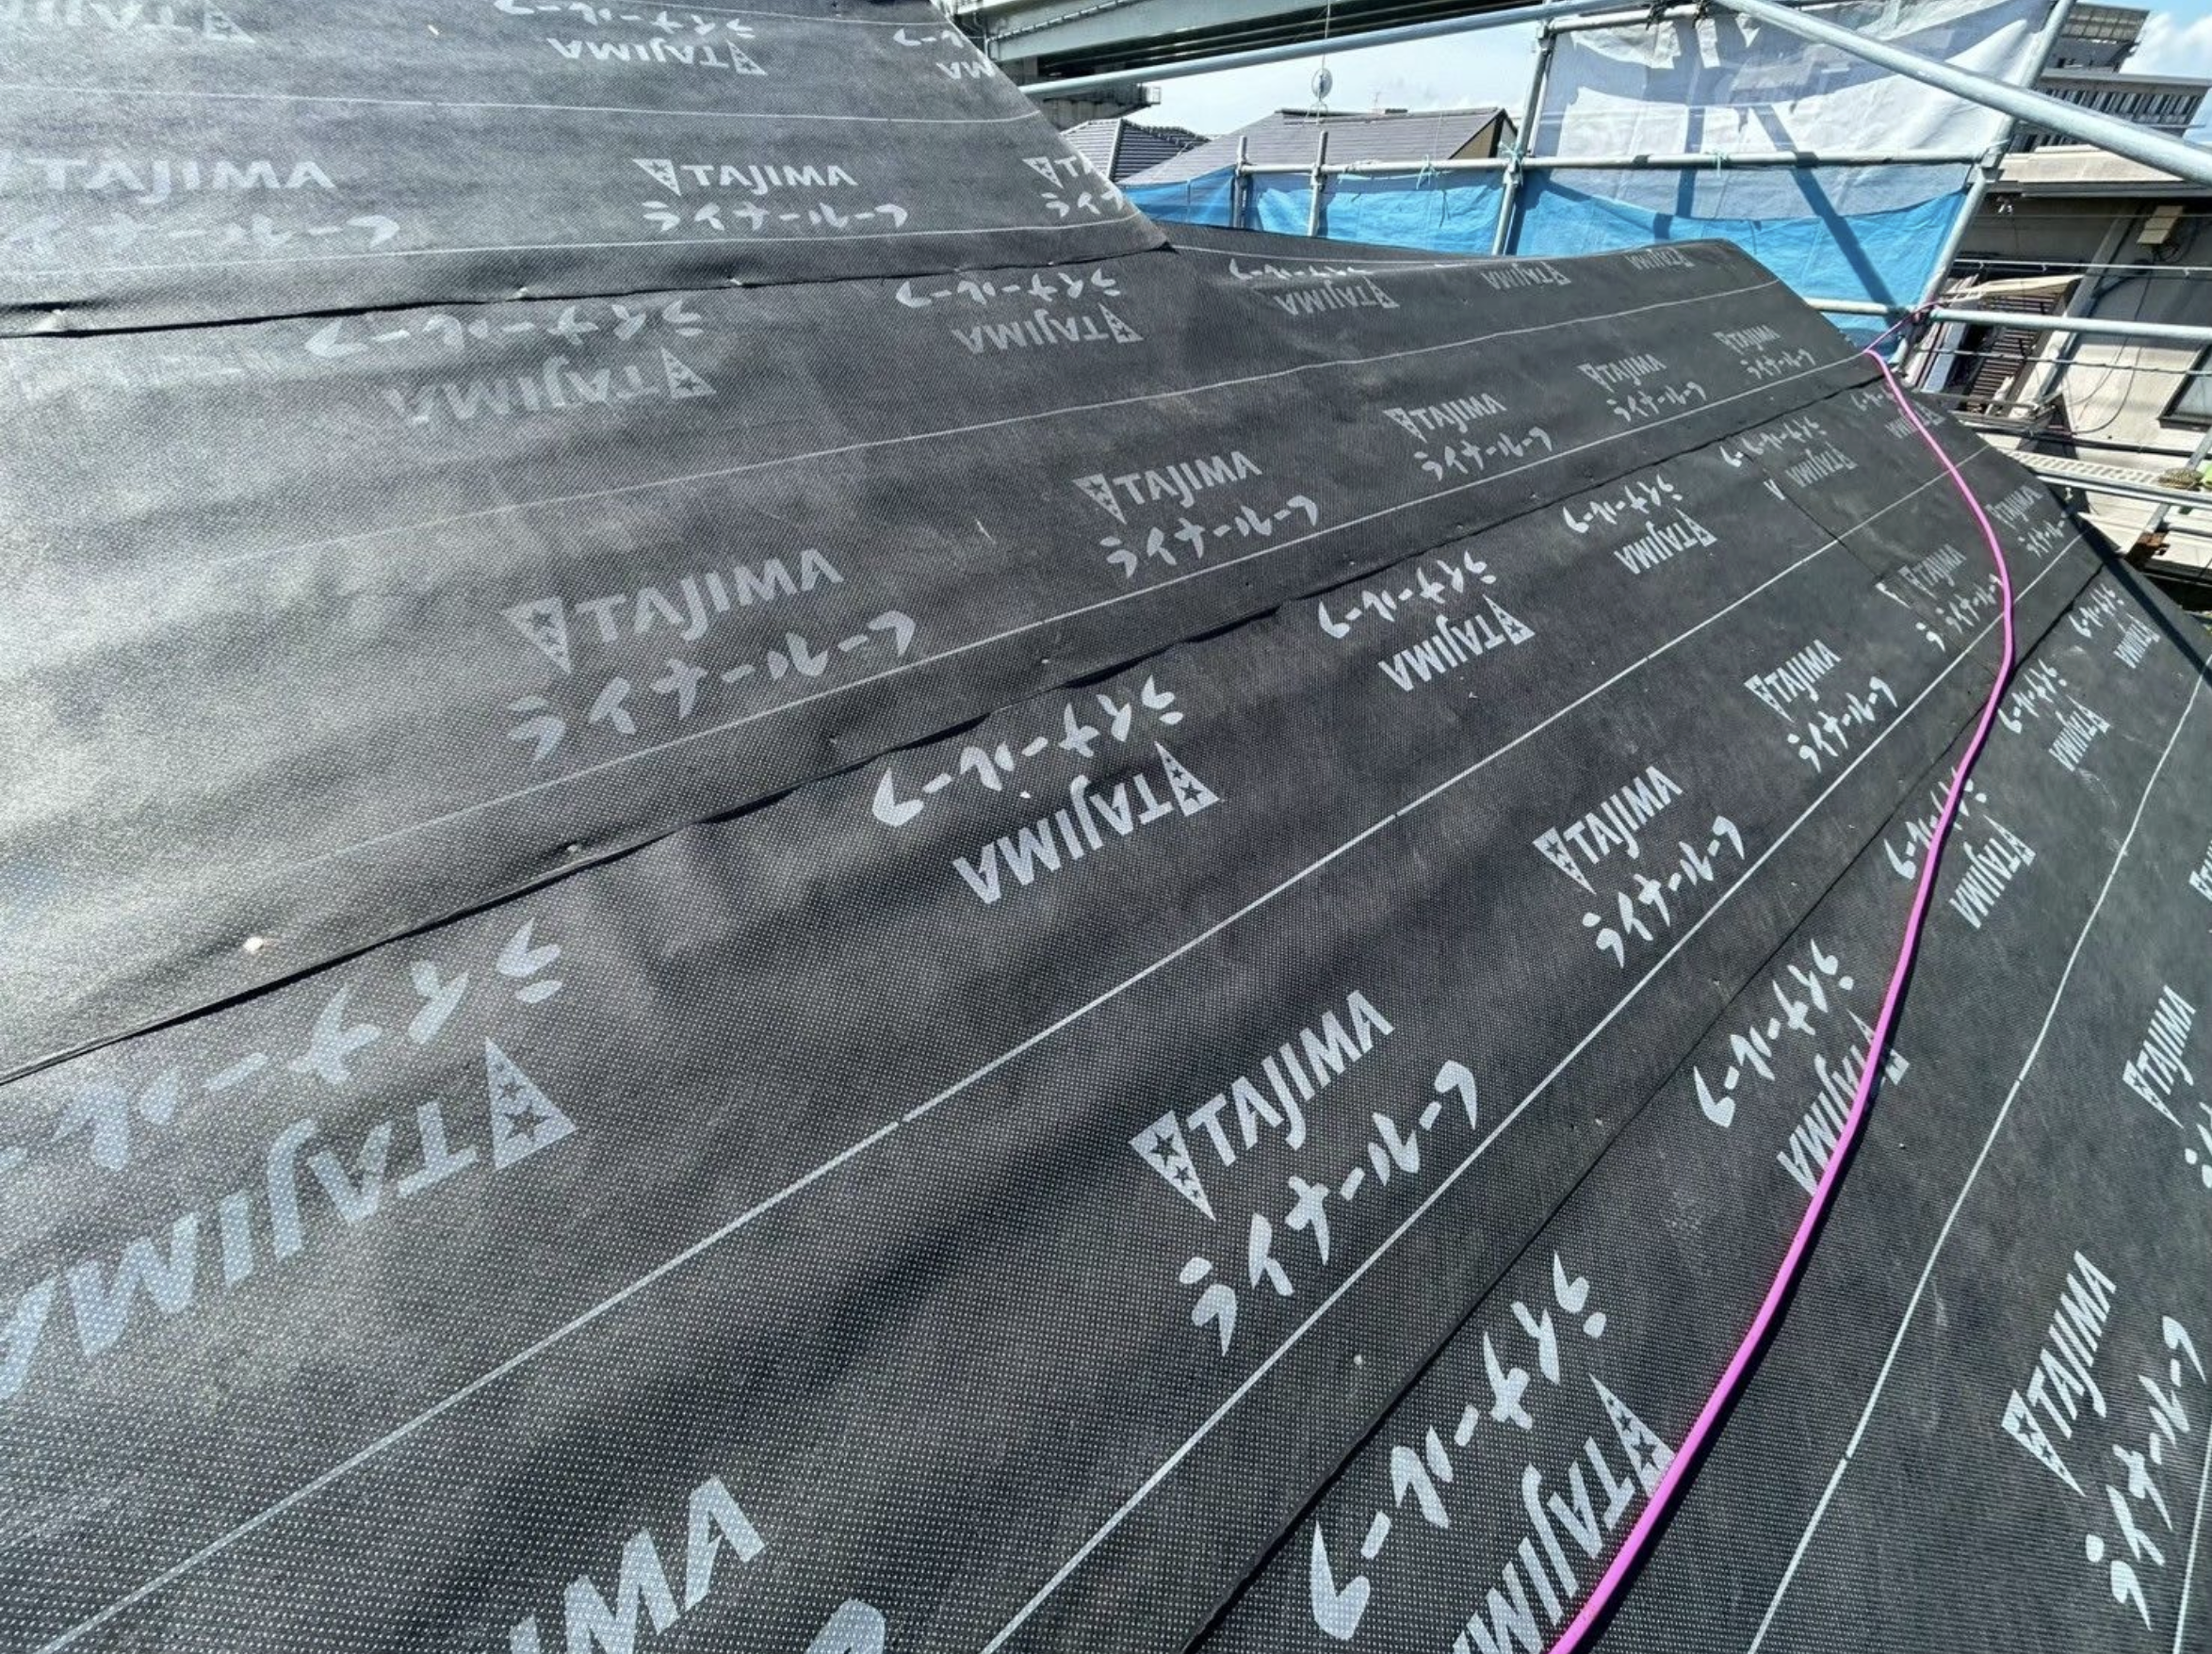 TAJIMA
ライナールーフ
TAJIMA
ライナールーフ
TAJIMA
ライナールーフ
TAJIMA
ライナールーフ
TAJIMA
ライナールーフ
TAJIMA
ライナールーフ
TAJIMA
ライナールーフ
TAJIMA
ライナールーフ
TAJIMA
ライナールーフ
TAJIMA
ライナールーフ
TAJIMA
ライナールーフ
TAJIMA
ライナールーフ
TAJIMA
ライナールーフ
TAJIMA
ライナールーフ
TAJIMA
ライナールーフ
TAJIMA
ライナールーフ
TAJIMA
ライナールーフ
TAJIMA
ライナールーフ